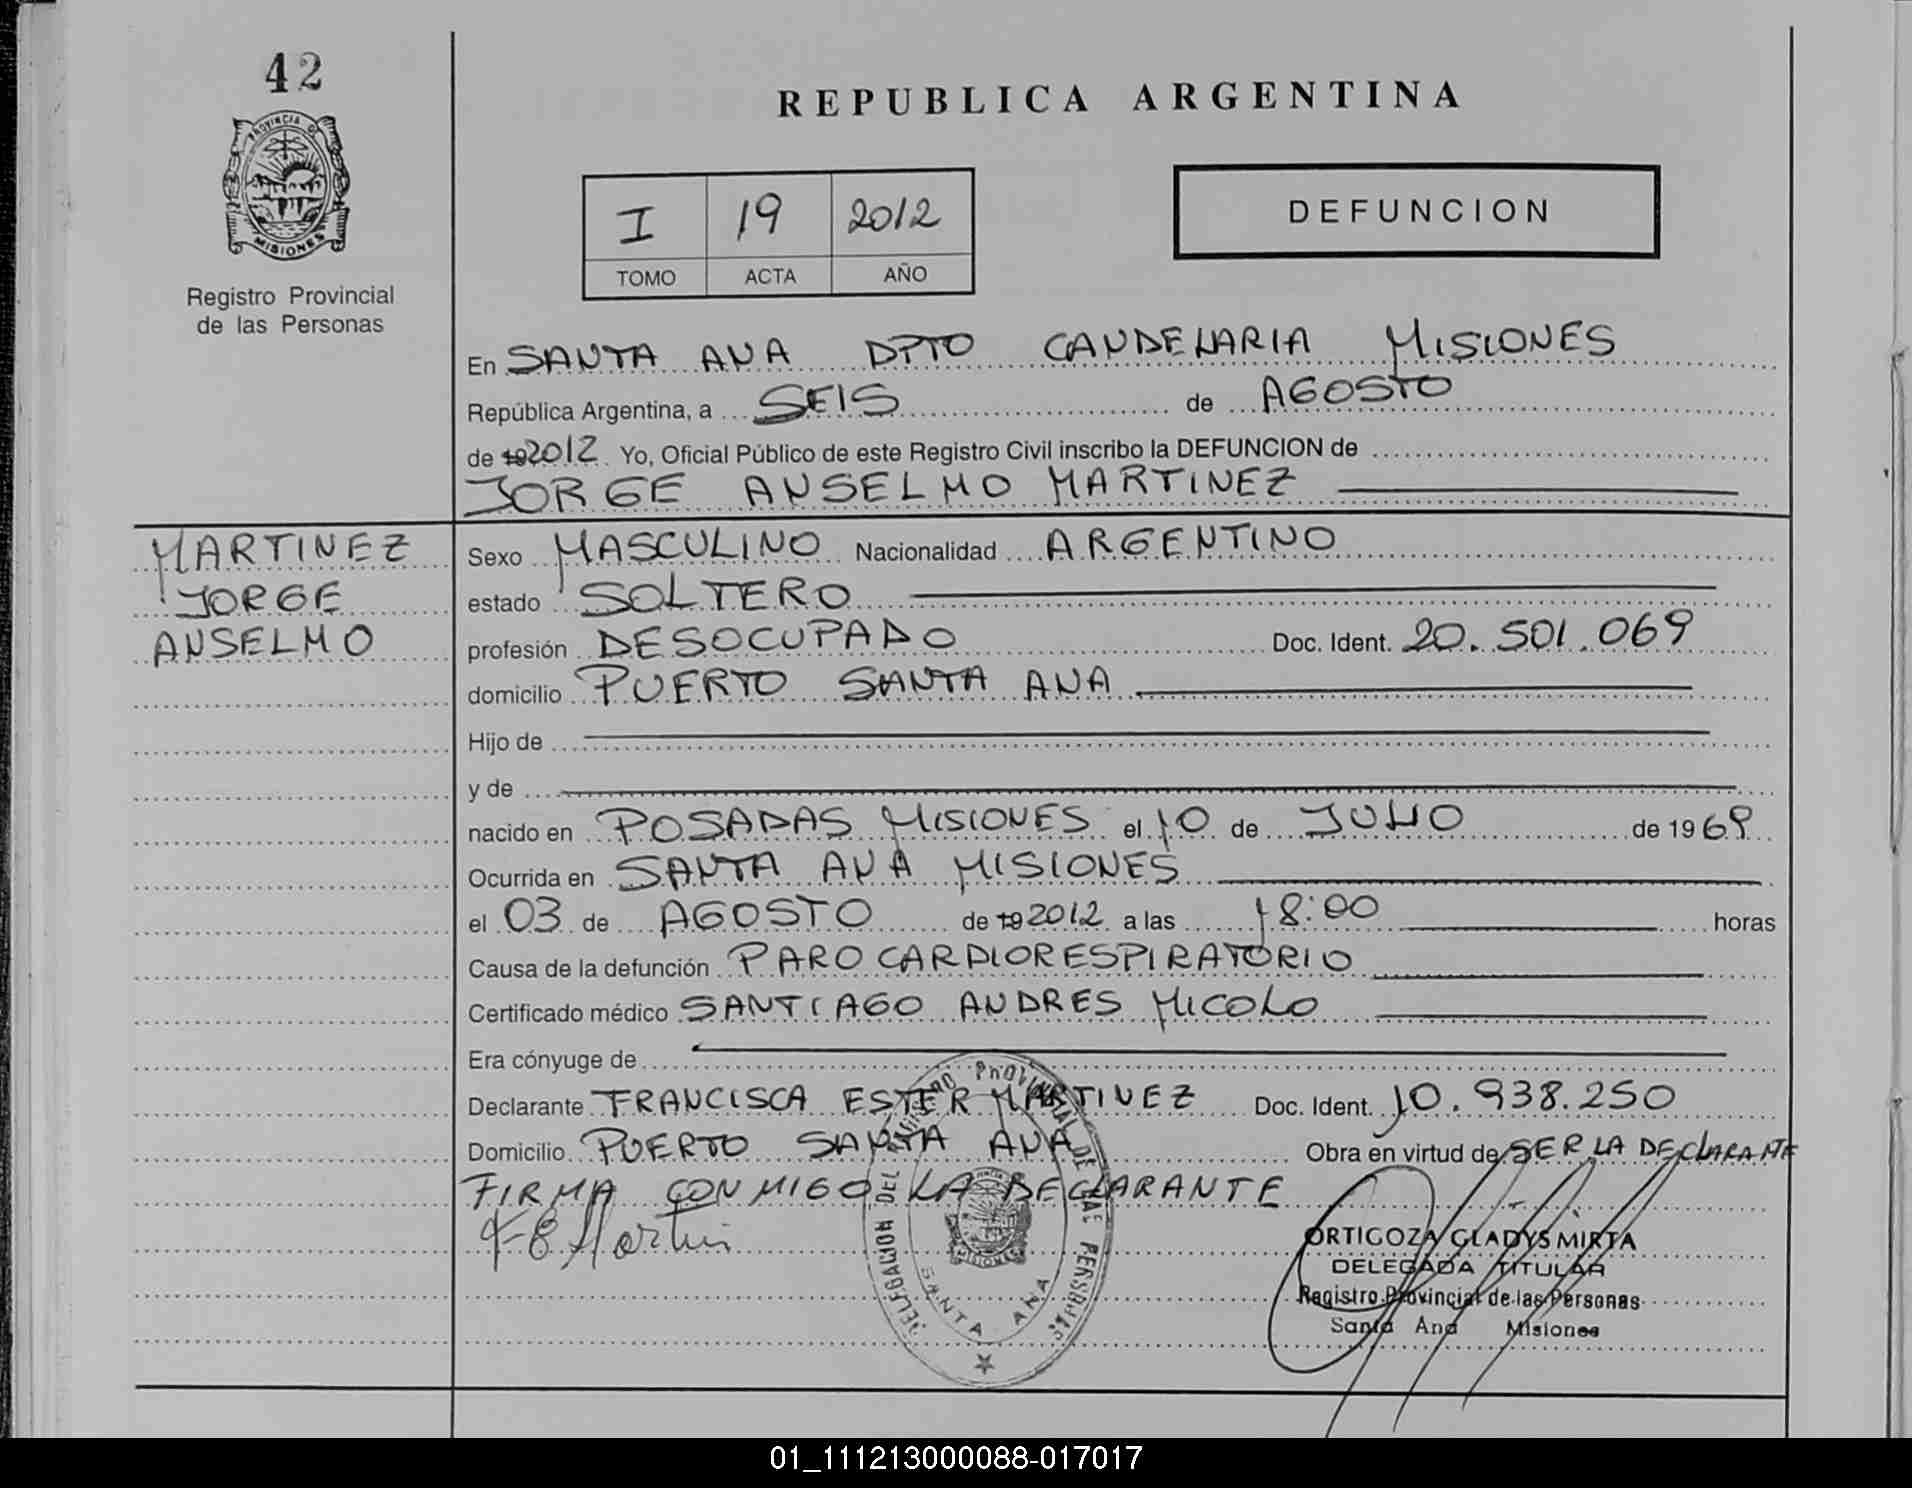 42
PROVINCIA DE
MISIONES
Registro Provincial
de las Personas
REPUBLICA ARGENTINA
I 19 2012
TOMO ACTA AÑO
DEFUNCION
En SANTA ANA DPTO CANDELARIA MISIONES
República Argentina, a SEIS de AGOSTO
de 192012 Yo, Oficial Público de este Registro Civil inscribo la DEFUNCION de
JORGE ANSELMO MARTINEZ
MARTINEZ
JORGE
ANSELMO
Sexo MASCULINO Nacionalidad ARGENTINO
estado SOLTERO
profesión DESOCUPADO Doc. Ident. 20.501.069
domicilio PUERTO SANTA ANA
Hijo de
y de
nacido en POSADAS MISIONES el 10 de JULIO de 1969
Ocurrida en SANTA ANA MISIONES
el 03 de AGOSTO de 19 2012 a las 18:00 horas
Causa de la defunción PARO CARDIORESPIRATORIO
Certificado médico SANTIAGO ANDRES MICOLO
Era cónyuge de
Declarante FRANCISCA ESTER MARTINEZ Doc. Ident. 10.938.250
Domicilio PUERTO SANTA ANA Obra en virtud de SER LA DECLARANTE
FIRMA CONMIGO LA DECLARANTE
DELEGACION DEL REGISTRO PROVINCIAL DE LAS PERSONAS
MISIONES
SANTA ANA
ORTIGOZA GLADYS MIRTA
DELEGADA TITULAR
Registro Provincial de las Personas
Santa Ana Misiones
01_111213000088-017017